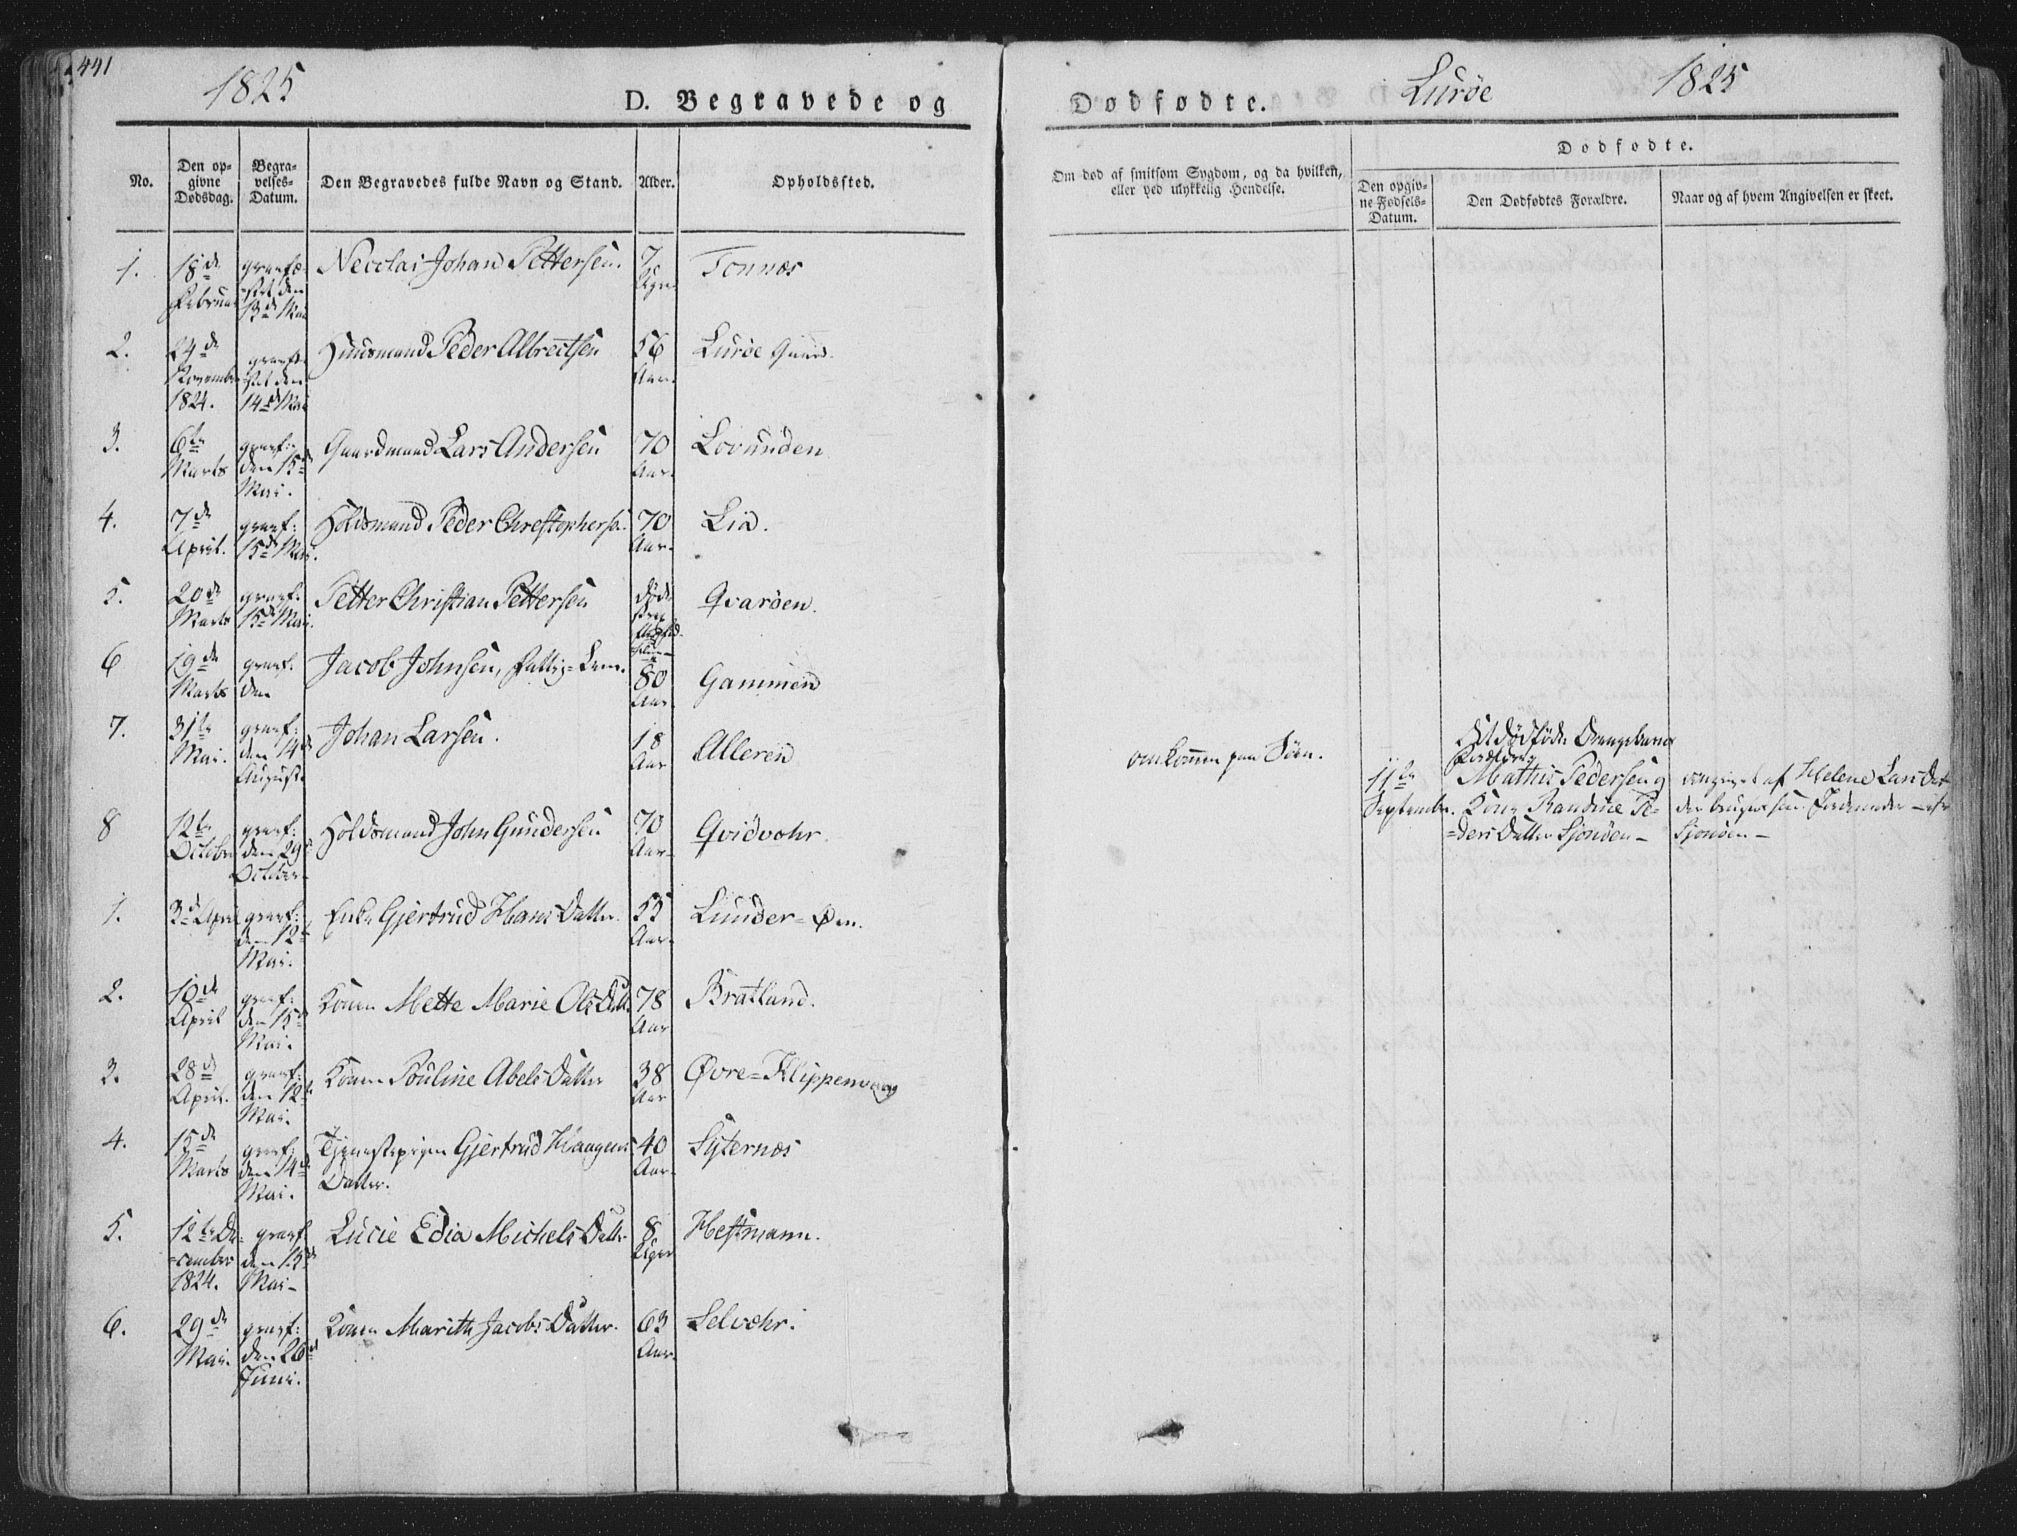 441
1825
D. Begravede og
Dødfødte.
Lurøe
1825
No.
Den opgivne Dødsdag.
Begravelses-Datum.
Den Begravedes fulde Navn og Stand.
Alder.
Opholdssted.
Om død af smitsom Sygdom, og da hvilken, eller ved ulykkelig Hendelse.
Dødfødte.
Den opgivne Fødsels-Datum.
Den Dødfødtes Forældre.
Naar og af hvem Angivelsen er skeet.
1. 18de Februar den 13de Mai Necolai Johan Pettersen. 7 Uger Tonnæs
2. 24de November 1824. den 14de Mai Huusmand Peder Albrectsen 56 Aar. Lurøe Gaard.
3. 6te Marts graef: den 15de Mai. Gaardmand Lars Andersen 70 Aar. Lovunden
4. 7de April. graef: 15de Mai. Holdsmand Peder Christophersen 70 Aar. Lia.
5. 20de Marts graef. 15de Mai. Petter Christian Pettersen døde Qvarøen.
6 19de Marts graef. den Jacob Johnsen, Fattig-Lem. 80 Aar. Gammen
7. 31te Mai. graef: den 14de August Johan Larsen. 18 Aar Alleren omkommen paa Søen.
11te September. Mathis Pedersen og Kone Randine Peders Datter Sjonøen-
angivet af Helene Lars Dat
Sjonøen-
8 12te October graef: den 29de October Holdsmand John Gundersen 70 Aar- Qvidvohr.
1. 3de April graef: den 12te Mai. Enke Gjertrud Hans Datter. 55 Aar. Lunder-Øen.
2. 10de April graef: den 15de Mai. Konen Mette Marie Ols Datter 78 Aar Bratland.
3. 28de April. graef: den 12te Mai. Konen Pouline Abels Datter 38 Aar Øvre-Klippenvaag
4. 15de Marts graef: den 14de Mai. Tjenestepigen Gjertrud Haagens Datter. 40 Aar. Syternæs
5. 12te December 1824. graef den 15de Mai- Lucie Edia Michels Datter 8 Uger Hestmann.
6. 29de Mai. graef: den 26de Juni. Konen Marith Jacobs Datter. 63 Aar. Selvohr.